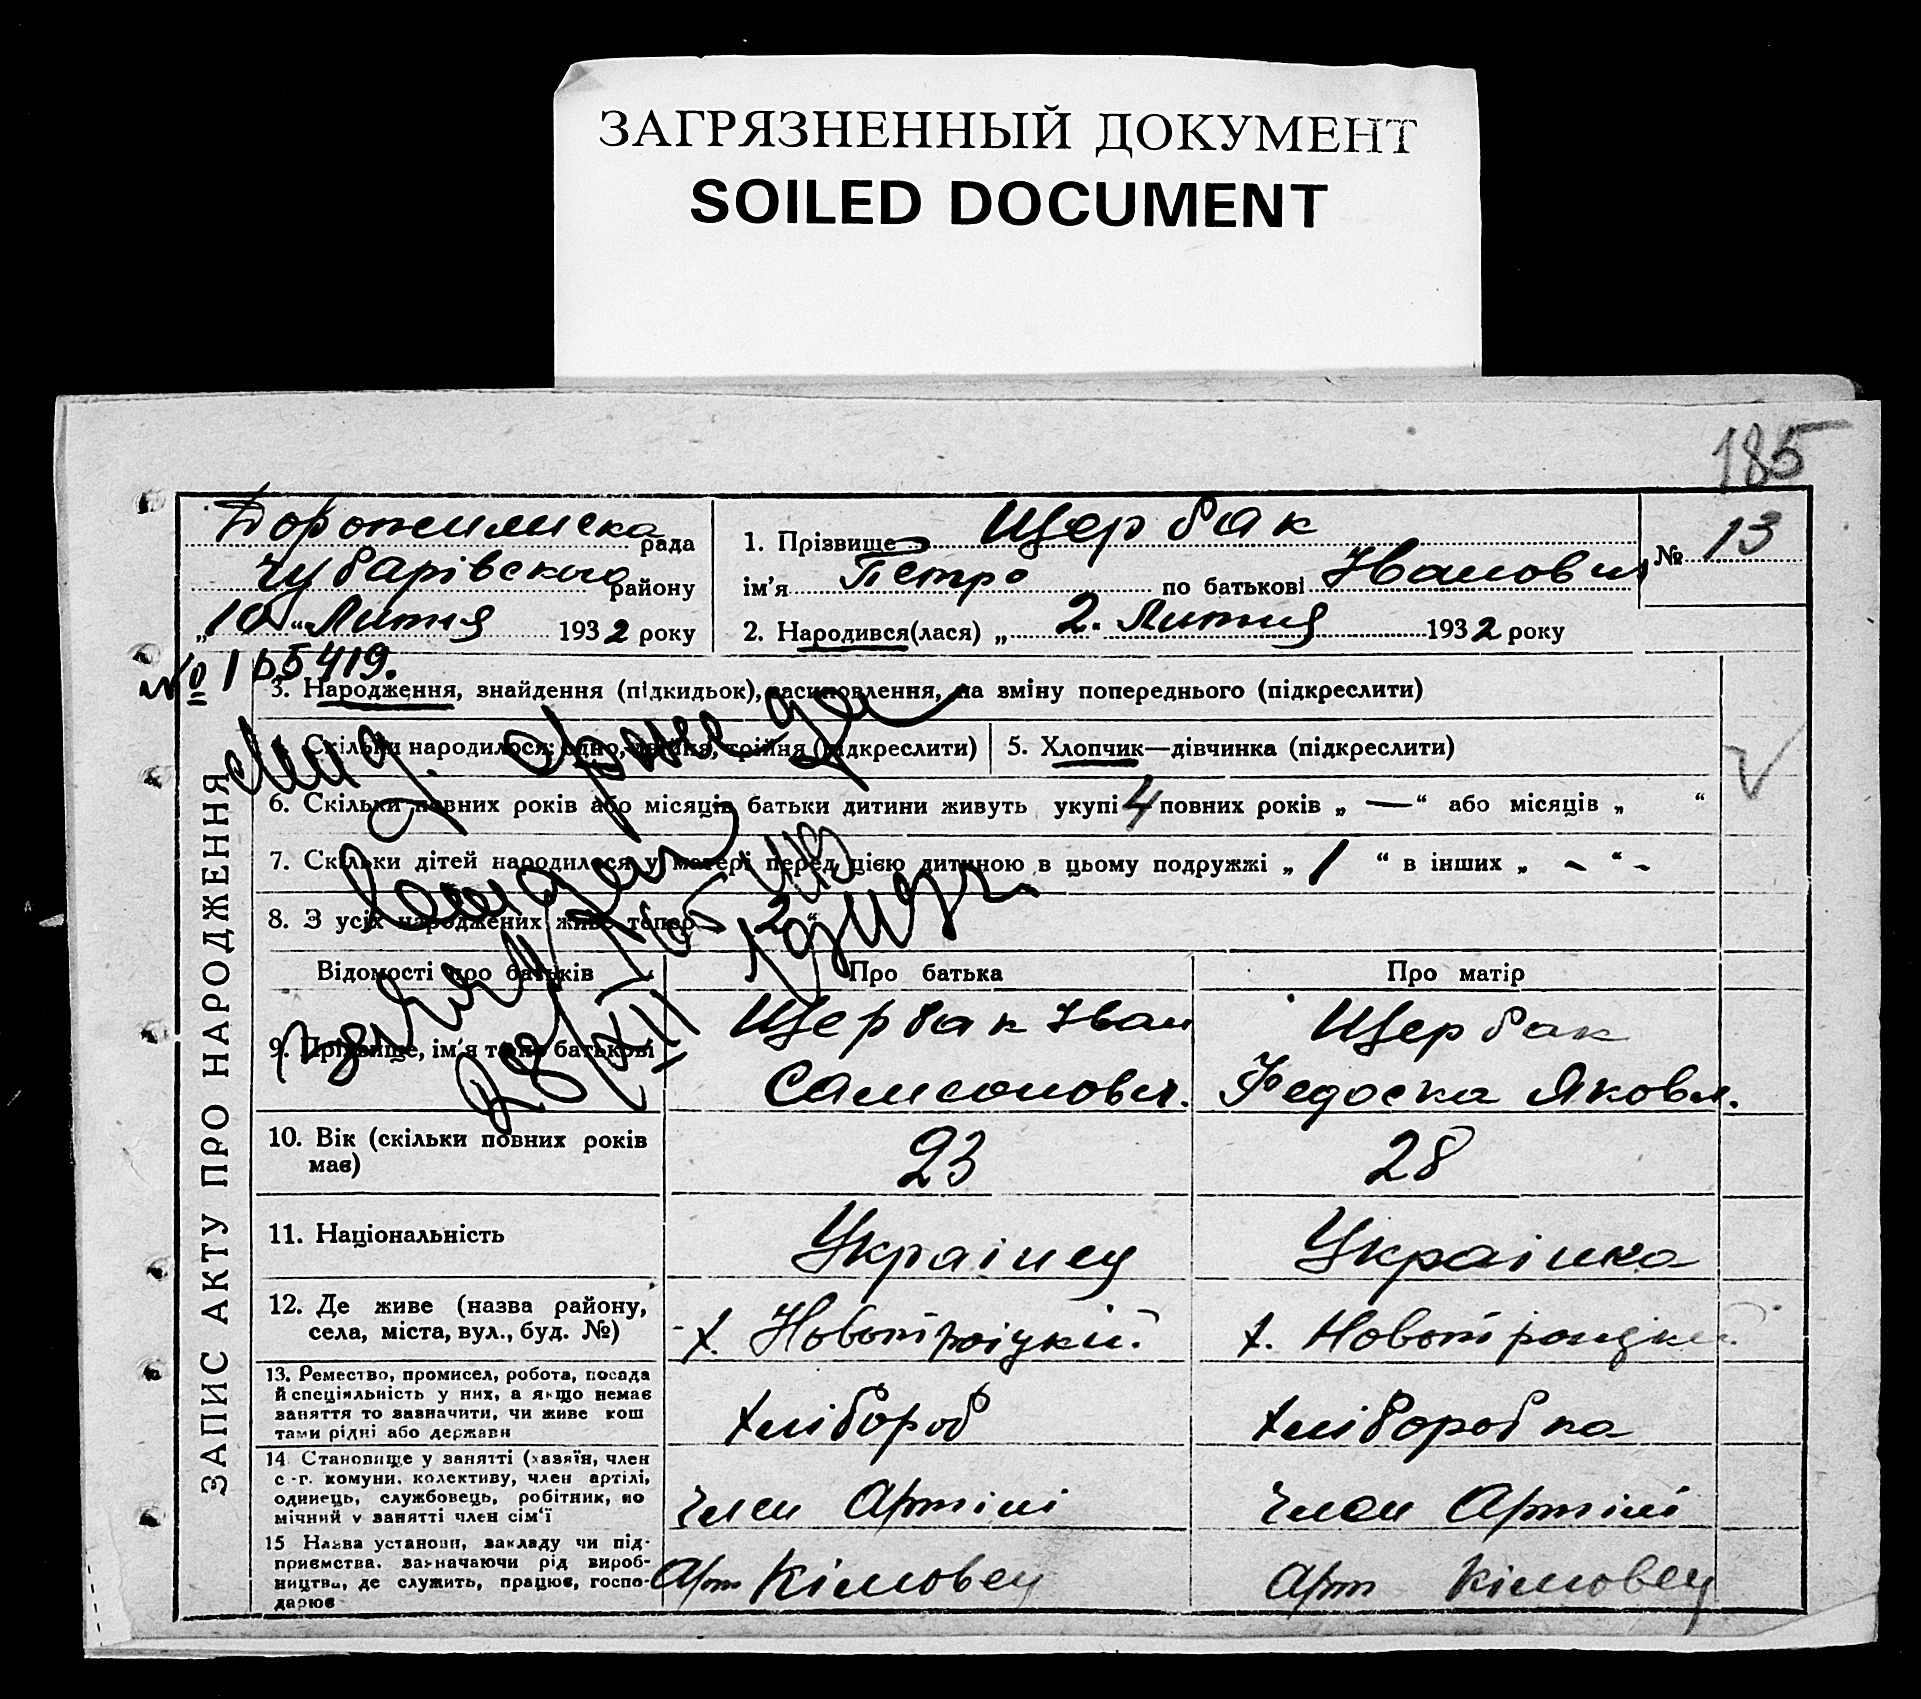 ЗАГРЯЗНЕННЫЙ ДОКУМЕНТ
SOILED DOCUMENT
185
рада
Чубарівського району
„10“ Лютня 1932 року
1. Прізвище Щербак
ім'я Петро по батькові Иванович
2. Народився(лася) „ 2. Лютня 1932 року
№ 13
№ 165419.
3. Народження, знайдення (підкидьок), засиновлення, на зміну попереднього (підкреслити)
Скільки народилося: одно, двійня, трійня (підкреслити)
5. Хлопчик—дівчинка (підкреслити)
6. Скільки повних років або місяців батьки дитини живуть укупі 4 повних років „ — “ або місяців „ “
7. Скільки дітей народилося у матері перед цією дитиною в цьому подружжі „ 1 “ в інших „ - “ -
8. З усіх народжених живе тепер „ 2 “
ЗАПИС АКТУ ПРО НАРОДЖЕННЯ
Відомості про батьків
Про батька
Про матір
9. Прізвище, ім'я та по батькові
Щербак Іван
Самсонович.
Щербак
Федоска Яковл.
10. Вік (скільки повних років
має)
23
28
11. Національність
Українец
Українка
12. Де живе (назва району,
села, міста, вул., буд. №)
х. Новотроіцкий.
х. Новотроицкий.
13. Ремество, промисел, робота, посада
й спеціяльність у них, а якщо немає
заняття то зазначити, чи живе кош
тами рідні або держави
Хлібороб
Хлiборобка
14 Становище у занятті (хазяїн, член
с.-г. комуни, колективу, член артілі,
одинець, службовець, робітник, по
мічний у занятті член сім'ї
Член Артілі
Член Артілі
15 Назва установи, закладу чи під-
приємства, зазначаючи рід вироб-
ництва, де служить, працює, госпо-
дарює
Арт Кімовец
Арт Кімовец